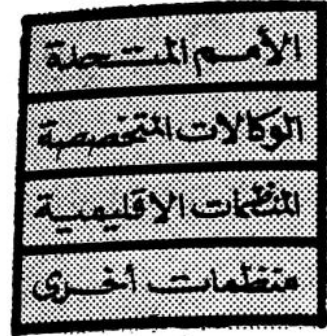 الأمم المتحدة
الوكالات المتخصصة
المنظمات الاقليمية
منظمات أخرى